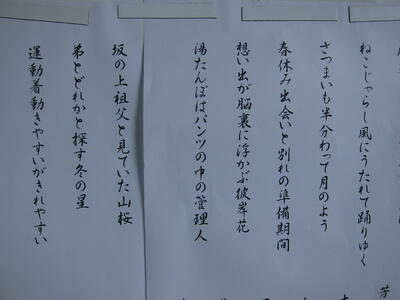 ねこじゃらし風にうたれて踊りゆく
さつまいも半分わって月のよう
春休み出会いと別れの準備期間
想い出が脳裏に浮かぶ彼岸花
湯たんぽはパンツの中の管理人
坂の上祖父と見ていた山桜
弟とどれかと探す冬の星
運動着動きやすいがきれやすい
芳